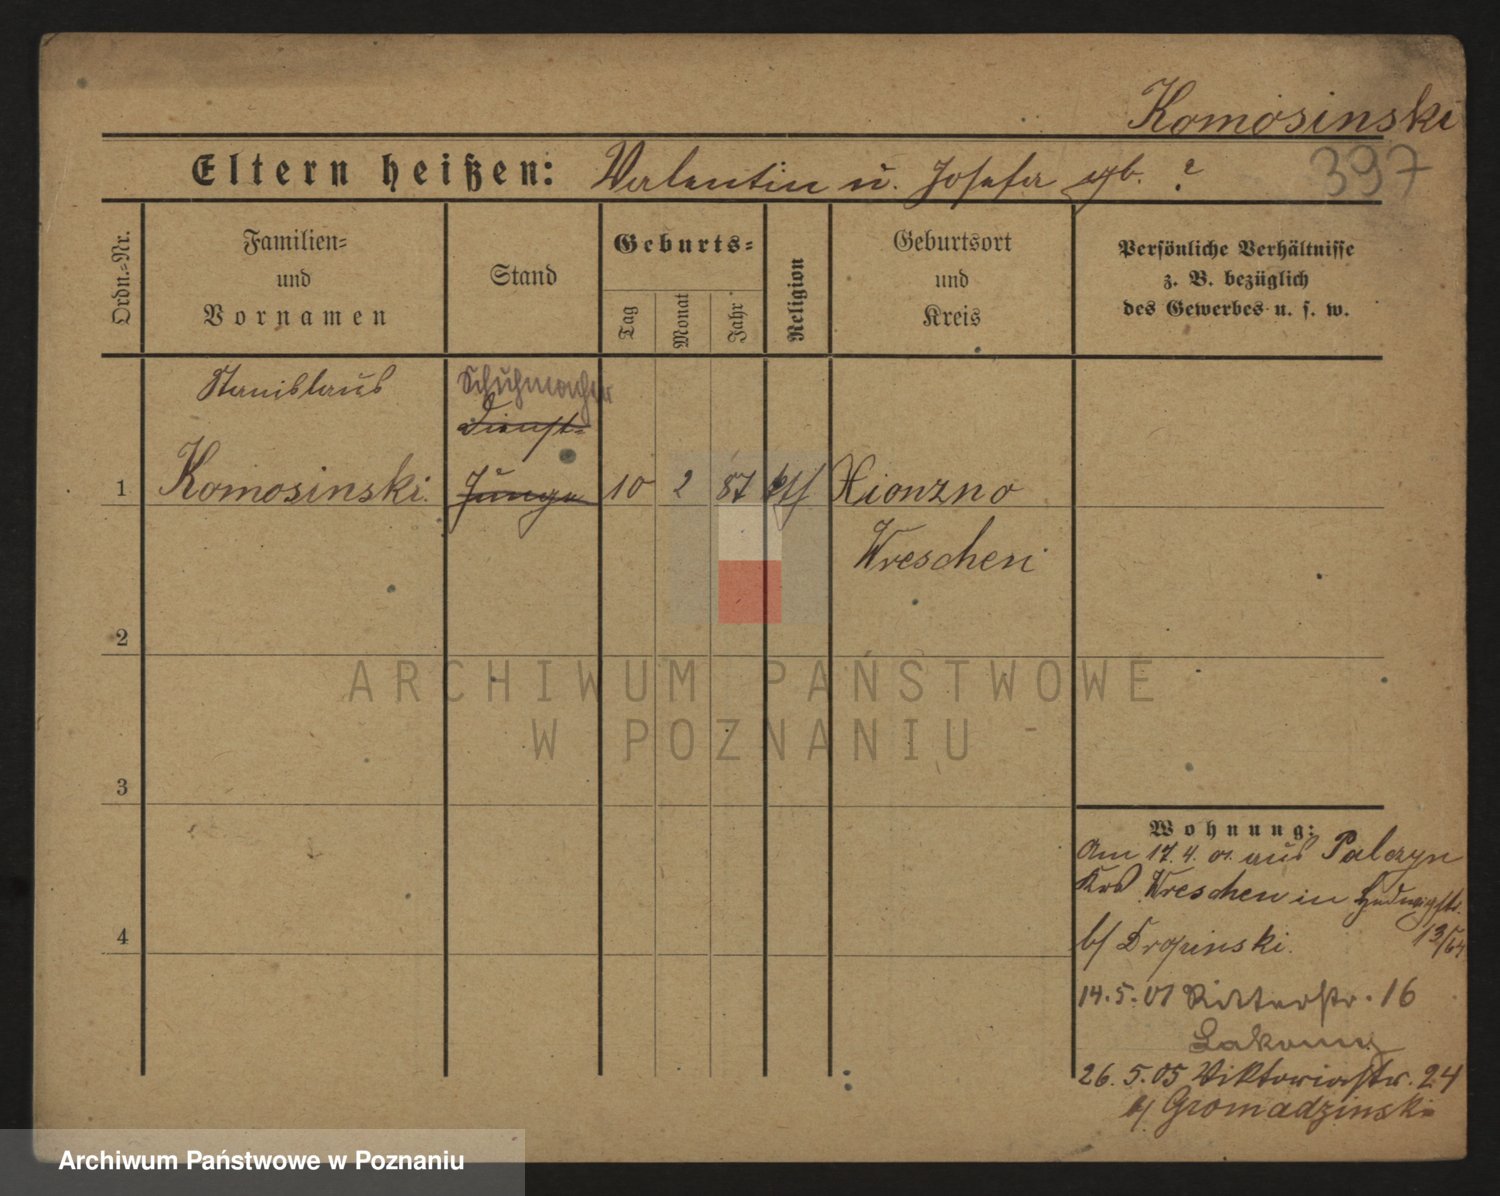 Komosinski
397
Eltern heißen: Valentin u. Josefa gb. ?
Ordn.-Nr.
Familien-
und
Vornamen
Stand
Geburts-
Tag
Monat
Jahr
Religion
Geburtsort
und
Kreis
Persönliche Verhältnisse
z. B. bezüglich
des Gewerbes u. s. w.
Stanislaus
Schuhmacher
Dienst-
1 Komosinski. Junge 10 2 87 Xionzno
Wreschen
2
ARCHIWUM PAŃSTWOWE
W POZNANIU
3
Wohnung:
Am 17.4.01. aus Palczyn
Wreschen in
13/64
b/ Dropinski.
14.5.01 Ritterstr. 16
26.5.05 Viktoriastr. 24
b/ Gromadzinski
4
Archiwum Państwowe w Poznaniu